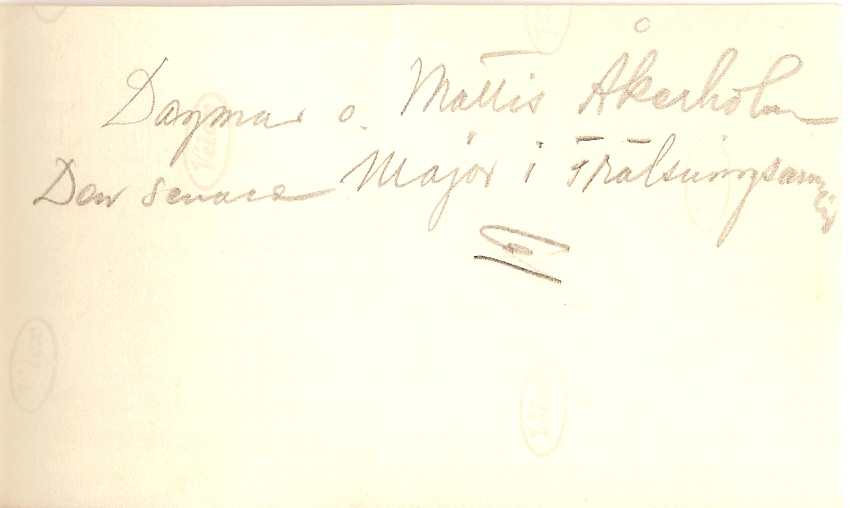 Dagmar o. Mattis Åkerholm
Den senare Major i Frälsningsarmén
Velox
Velox
Velox
Velox